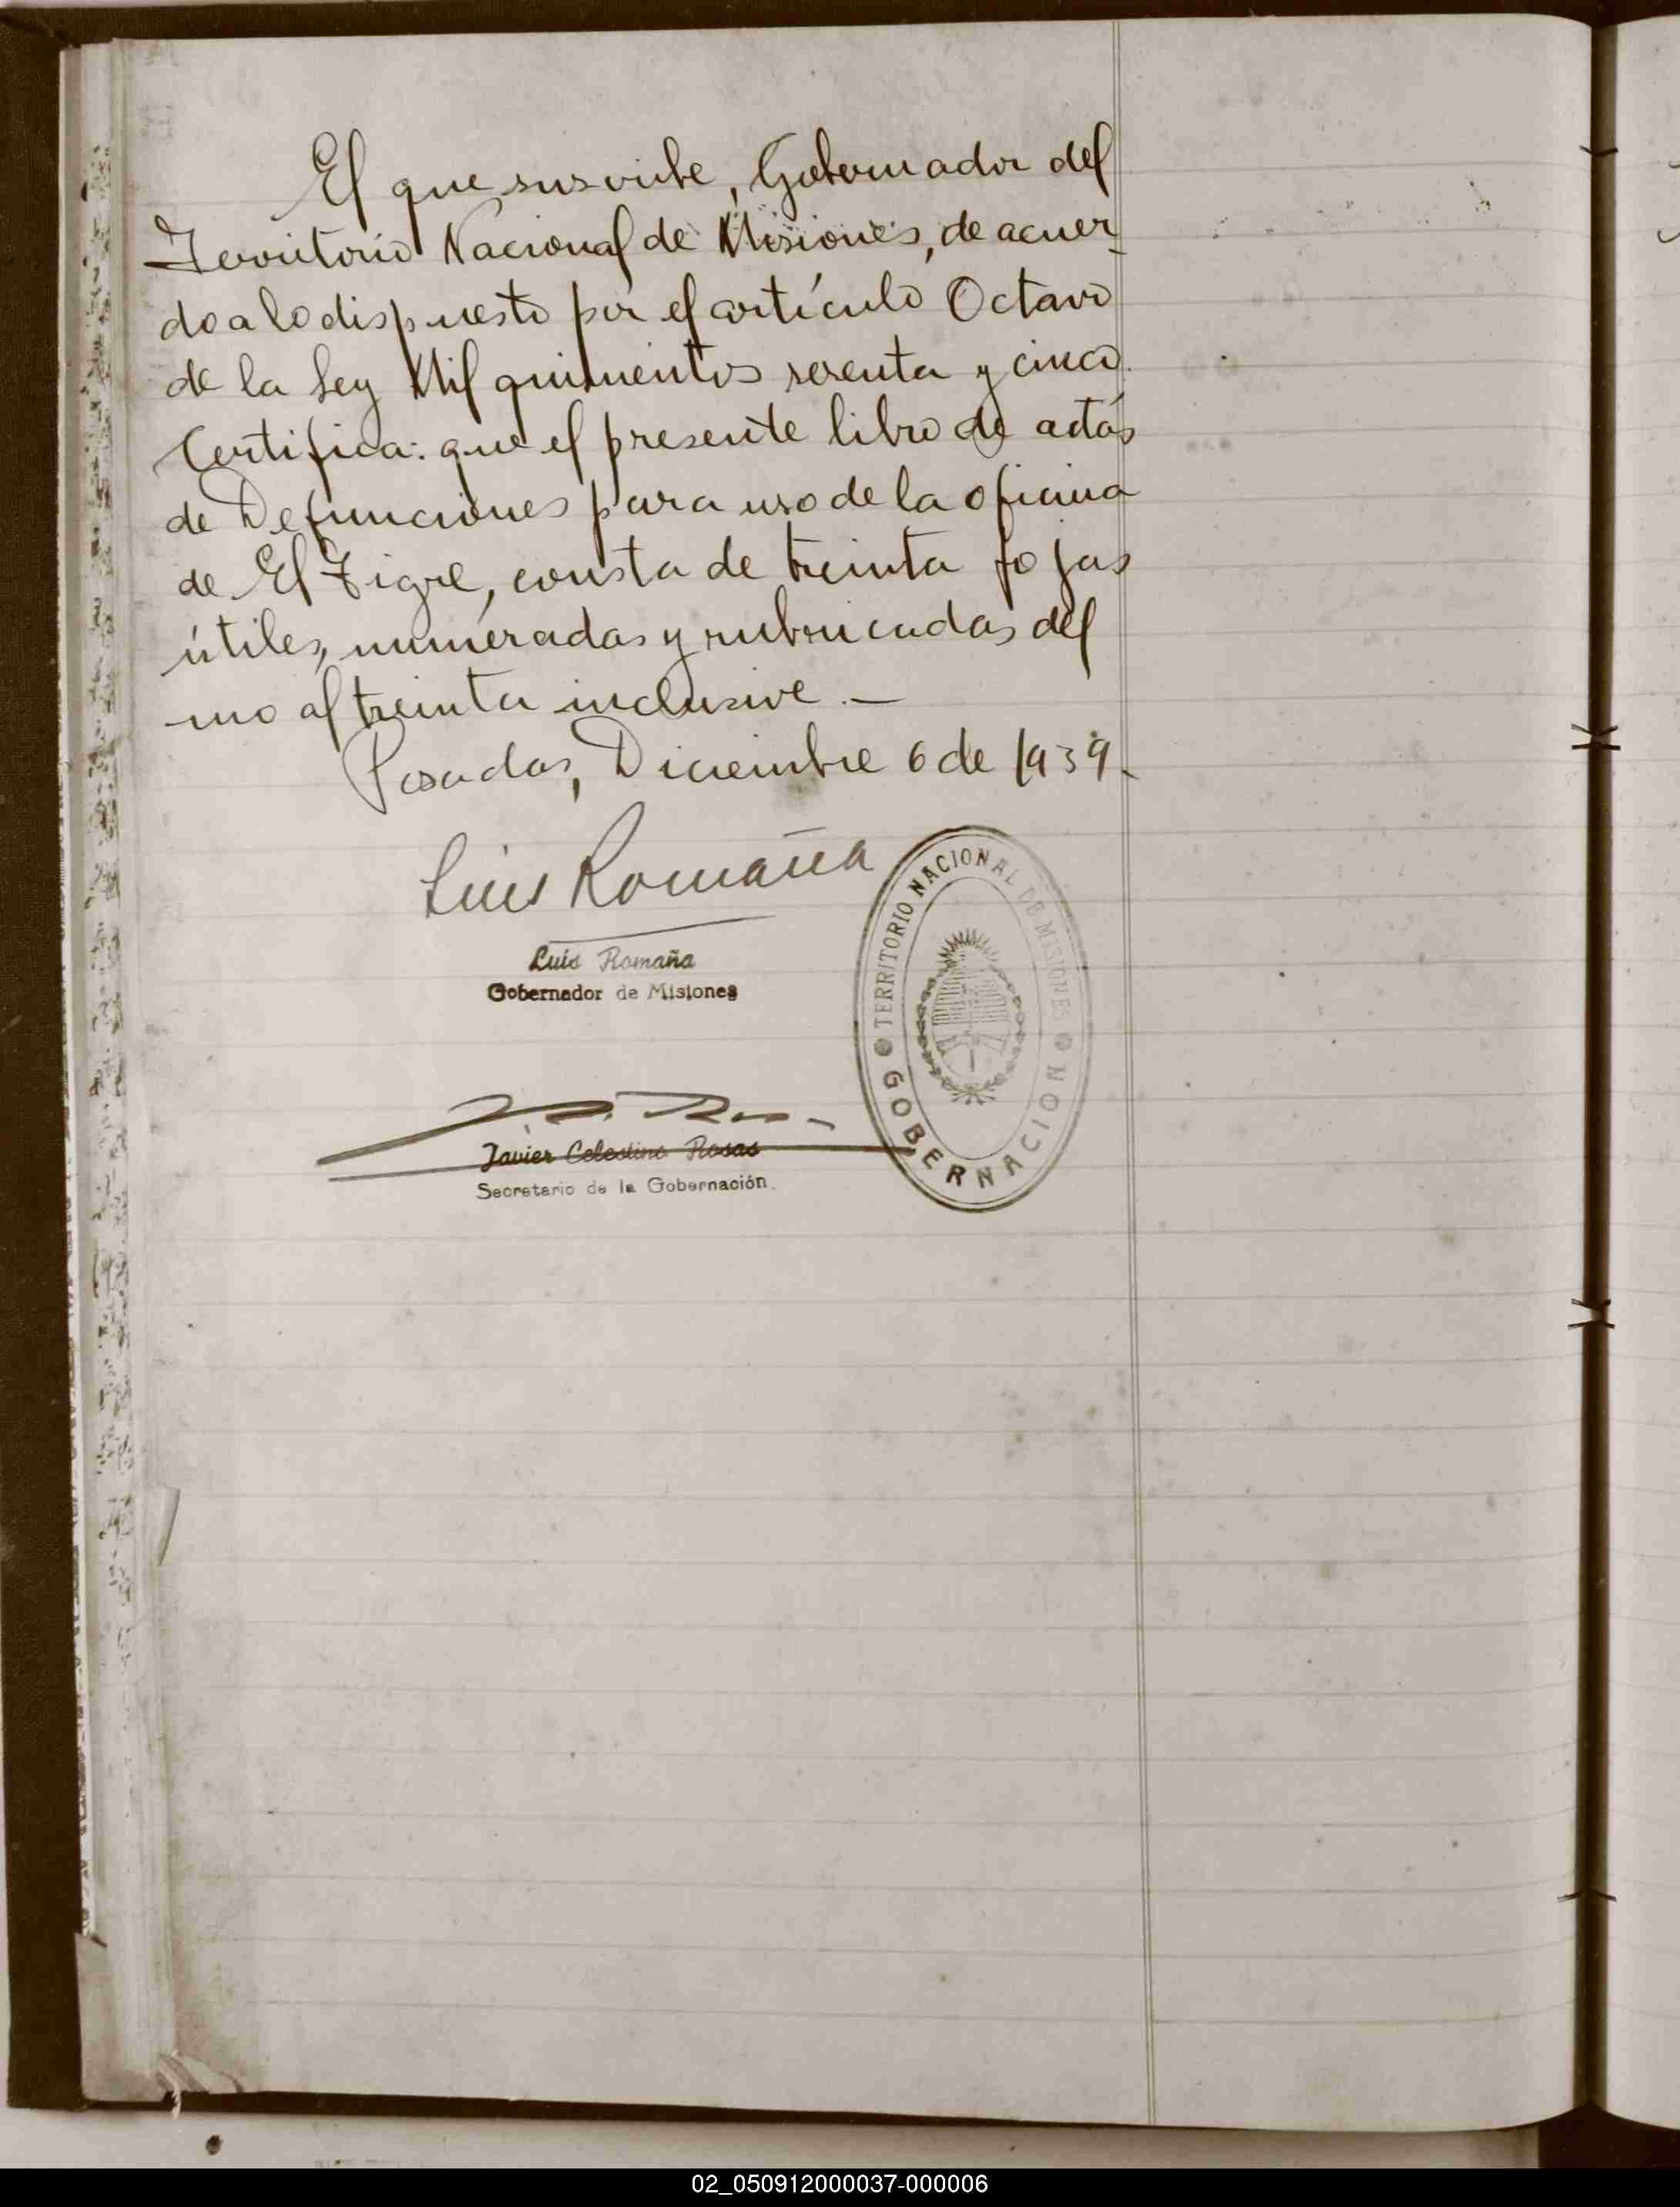 El que suscribe, Gobernador del
Territorio Nacional de Misiones, de acuer-
do a lo dispuesto por el artículo Octavo
de la Ley Mil quinientos sesenta y cinco.
Certifica: que el presente libro de actas
de Defunciones para uso de la oficina
de El Tigre, consta de treinta fojas
útiles, numeradas y rubricadas del
uno al treinta inclusive.—
Posadas, Diciembre 6 de 1939.
Luis Romaña
Luis Romaña
Gobernador de Misiones
TERRITORIO NACIONAL DE MISIONES
GOBERNACION
Javier Celestino Rosas
Secretario de la Gobernación
02_050912000037-000006